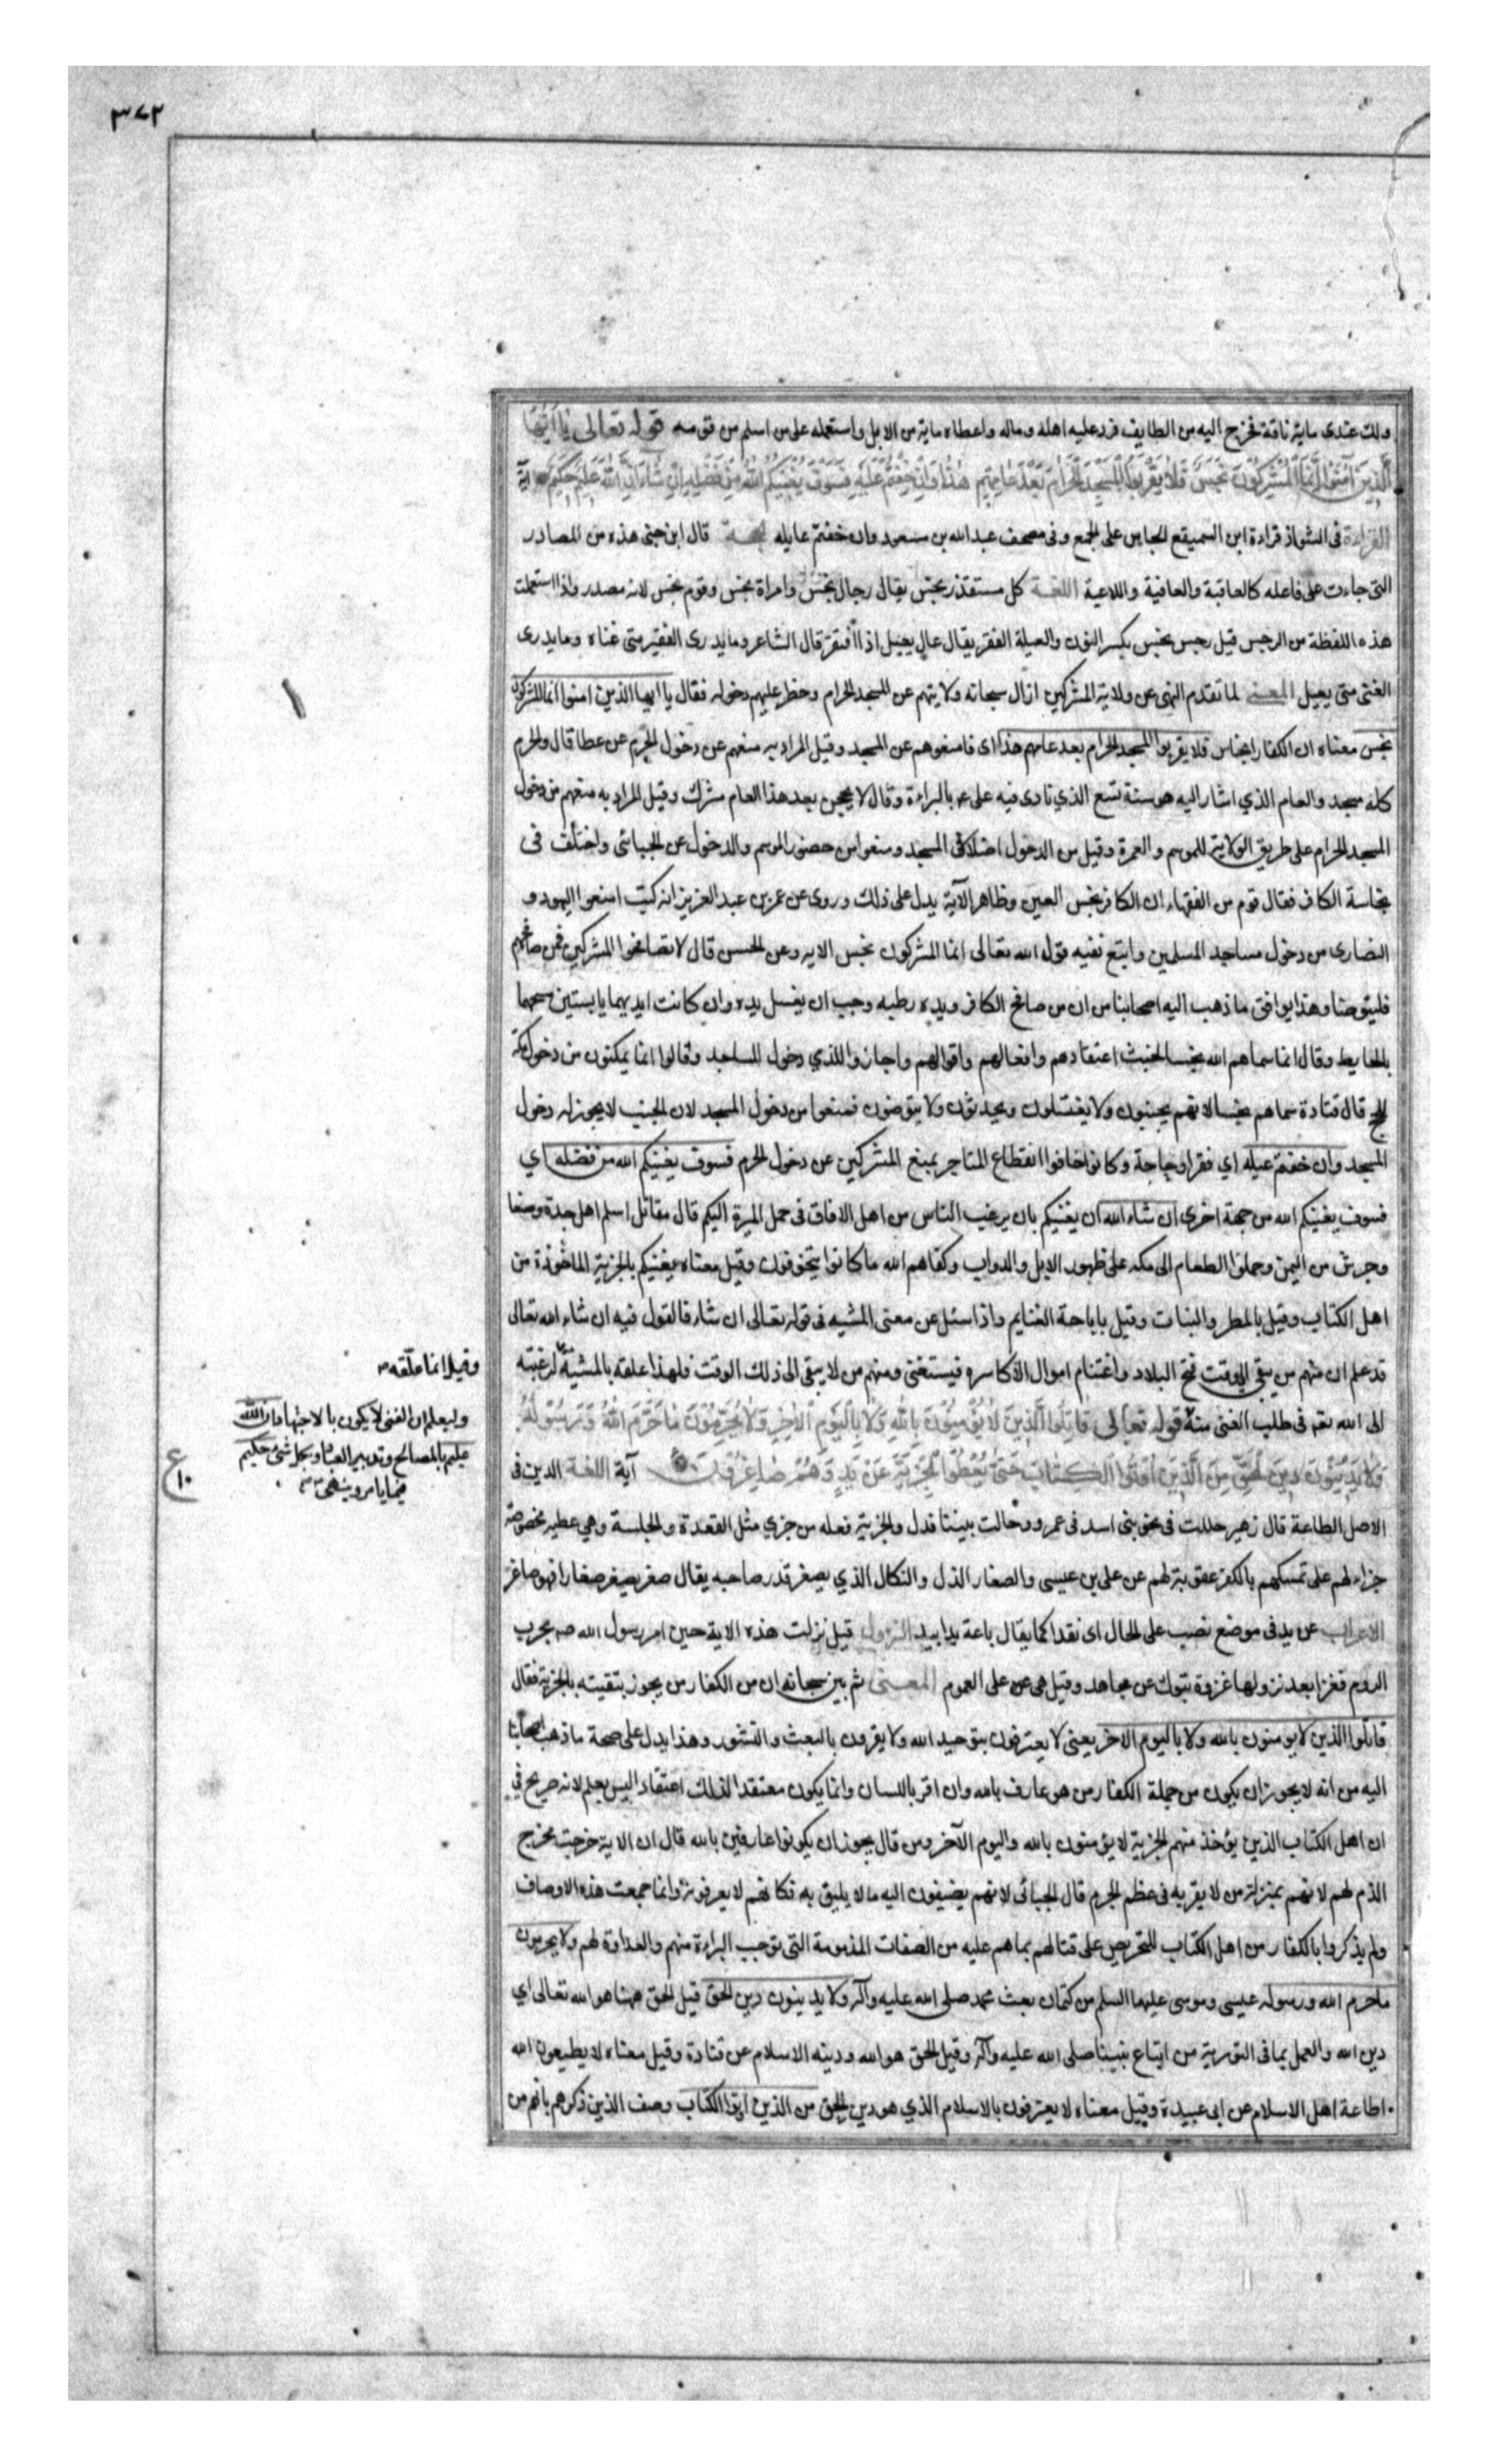 ٣٧٢
ولك عندى ماية ناقة فخرج اليه من الطايف فرد عليه اهله وماله واعطاه ماية من الابل واستعمله على من اسلم من قومه قوله تعالى يا ايها
الَّذِينَ آمَنُوا اِنَّمَا الْمُشْرِكُونَ نَجَسٌ فَلَا يَقْرَبُوا الْمَسْجِدَ الْحَرَامَ بَعْدَ عَامِهِمْ هٰذَا وَاِنْ خِفْتُمْ عَيْلَةً فَسَوْفَ يُغْنِيكُمُ اللهُ مِنْ فَضْلِهِ اِنْ شَاءَ اِنَّ اللهَ عَلِيمٌ حَكِيمٌ آية
القراءة فى الشواذ قراءة ابن السميقع انجاس على الجمع وفى مصحف عبد الله بن مسعود وان خفتم عايله قال ابن جنى هذه من المصادر
التى جاءت على فاعله كالعاقبة والعافية واللاعية اللغة كل مستقذر نجس يقال رجال نجس وامراة نجس وقوم نجس لانه مصدر واذا استعملت
هذه اللفظة من الرجس قيل رجس نجس بكسر النون والعيلة الفقر يقال عال يعيل اذا افتقر قال الشاعر وما يدرى الفقير متى غناه وما يدرى
الغنى متى يعيل المعنى لما تقدم النهى عن ولاية المشركين ازال سبحانه ولايتهم عن المسجد الحرام وحظر عليهم دخوله فقال يا ايها الذين امنوا انما المشركون
نجس معناه ان الكفار انجاس فلا يقربوا المسجد الحرام بعد عامهم هذا اى فامنعوهم عن المسجد وقيل المراد به منعهم عن دخول الحرم عن عطا قال والحرم
كله مسجد والعام الذي اشار اليه هو سنة تسع الذي نادى فيه على ع بالبراءة وقال لا يحجن بعد هذا العام مشرك وقيل المراد به منعهم من دخول
المسجد الحرام على طريق الولاية للموسم والعمرة وقيل من الدخول المسجد ومنعوا من حضور الموسم والدخول عن الجبائى واختلف فى
نجاسة الكافر فقال قوم من الفقهاء ان الكافر نجس العين وظاهر الآية يدل على ذلك وروى عن عمر بن عبد العزيز انه كتب امنعوا اليهود و
النصارى من دخول مساجد المسلمين واتبع نهيه قول الله تعالى انما المشركون نجس الايه وعن الحسن قال لا تصافحوا المشركين فمن صافحهم
فليتوضا وهذا يوافق ما ذهب اليه اصحابنا من ان من صافح الكافر ويده رطبه وجب ان يغسل يده وان كانت ايديهما يابستين مسحهما
بالحايط وقال انما سماهم الله نجسا لخبث اعتقادهم وافعالهم واقوالهم واجازوا للذمي دخول المساجد وقالوا انما يمكنون من دخول مكة
للحج قال قتادة سماهم نجسا لانهم يجنبون ولا يغتسلون ويحدثون ولا يتوضون فمنعوا من دخول المسجد لان الجنب لا يجوز له دخول
المسجد وان خفتم عيله اي فقرا وحاجة وكانوا خافوا انقطاع المتاجر بمنع المشركين عن دخول الحرم فسوف يغنيكم الله من فضله اي
فسوف يغنيكم الله من جهة اخرى ان شاء الله ان يغنيكم بان يرغب الناس من اهل الافاق فى حمل الميرة اليكم قال مقاتل اسلم اهل جدة وصنعا
وجرش من اليمن وحملوا الطعام الى مكه على ظهور الابل والدواب وكفاهم الله ما كانوا يتخوفون وقيل معناه يغنيكم بالجزية الماخوذة من
اهل الكتاب وقيل بالمطر والنبات وقيل باباحة الغنايم واذا سئل عن معنى المشيه فى قوله تعالى ان شاء فالقول فيه ان شاء الله تعالى
قد علم ان منهم من يبقى الى وقت فتح البلاد واغتنام اموال الاكاسره فيستغنى ومنهم من لا يبقى الى ذلك الوقت فلهذا علقه بالمشيّة لرغبته
الى الله تعم فى طلب الغنى منه قوله تعالى قَاتِلُوا الَّذِينَ لَا يُؤْمِنُونَ بِاللهِ وَلَا بِالْيَوْمِ الْآخِرِ وَلَا يُحَرِّمُونَ مَا حَرَّمَ اللهُ وَرَسُولُهُ
وَلَا يَدِينُونَ دِينَ الْحَقِّ مِنَ الَّذِينَ اُوتُوا الْكِتَابَ حَتَّى يُعْطُوا الْجِزْيَةَ عَنْ يَدٍ وَهُمْ صَاغِرُونَ آية اللغة الدين فى
الاصل الطاعة قال زهير حللت فى بنى اسد فى عمرو وحالت بيننا فدك والجزية فعله من جزي مثل القعدة والجلسة وهى عطيه مخصوصة
جزاء لهم على تمسكهم بالكفر عقوبة لهم عن على بن عيسى والصغار الذل والنكال الذي يصغر قدر صاحبه يقال صغر يصغر صغارا فهو صاغر
الاعراب عن يد فى موضع نصب على الحال اى نقدا كما يقال باعة يدا بيد النزول قيل نزلت هذه الاية حين امر رسول الله صم بحرب
الروم فغزا بعد نزولها غزوة تبوك عن مجاهد وقيل هى على العموم المعنى ثم بين سبحانه ان من الكفار من يجوز تبقيته بالجزية فقال
قاتلوا الذين لا يومنون بالله ولا باليوم الاخر يعنى لا يعترفون بتوحيد الله ولا يقرون بالبعث والنشور وهذا يدل على صحة ما ذهب اصحابنا
اليه من انه لا يجوز ان يكون من جملة الكفار من هو عارف بالله وان اقر باللسان وانما يكون معتقدا لذلك اعتقادا ليس بعلم لانه صريح في
ان اهل الكتاب الذين يؤخذ منهم الجزية لا يؤمنون بالله واليوم الآخر ومن قال يجوز ان يكونوا عارفين بالله قال ان الاية خرجت مخرج
الذم لهم لانهم بمنزلة من لا يقر به فى عظم الجرم قال الجبائى لانهم يضيفون اليه ما لا يليق به فكانهم لا يعرفونه وانما جمعت هذه الاوصاف
ولم يذكروا بالكفار من اهل الكتاب للتحريص على قتالهم بما هم عليه من الصفات المذمومة التى توجب البراءة منهم والعداوة لهم ولا يحرمون
ما حرم الله ورسوله عيسى وموسى عليهما السلم من كتمان بعث محمد صلى الله عليه وآله ولا يدينون دين الحق قيل الحق ههنا هو الله تعالى اي
دين الله والعمل بما فى التورية من اتباع نبينا صلى الله عليه وآله وقيل الحق هو الله ودينه الاسلام عن قتادة وقيل معناه لا يطيعون الله
اطاعة اهل الاسلام عن ابى عبيدة وقيل معناه لا يعترفون بالاسلام الذي هو دين الحق من الذين اوتوا الكتاب وصف الذين ذكرهم بانهم من
وقيل انما علّقه
وليعلم ان الغنى لا يكون بالاجتهاد ان الله
عليم بالمصالح وتدبير العباد وبكل شئ حكيم
فيما يامر وينهى
ع
١٠